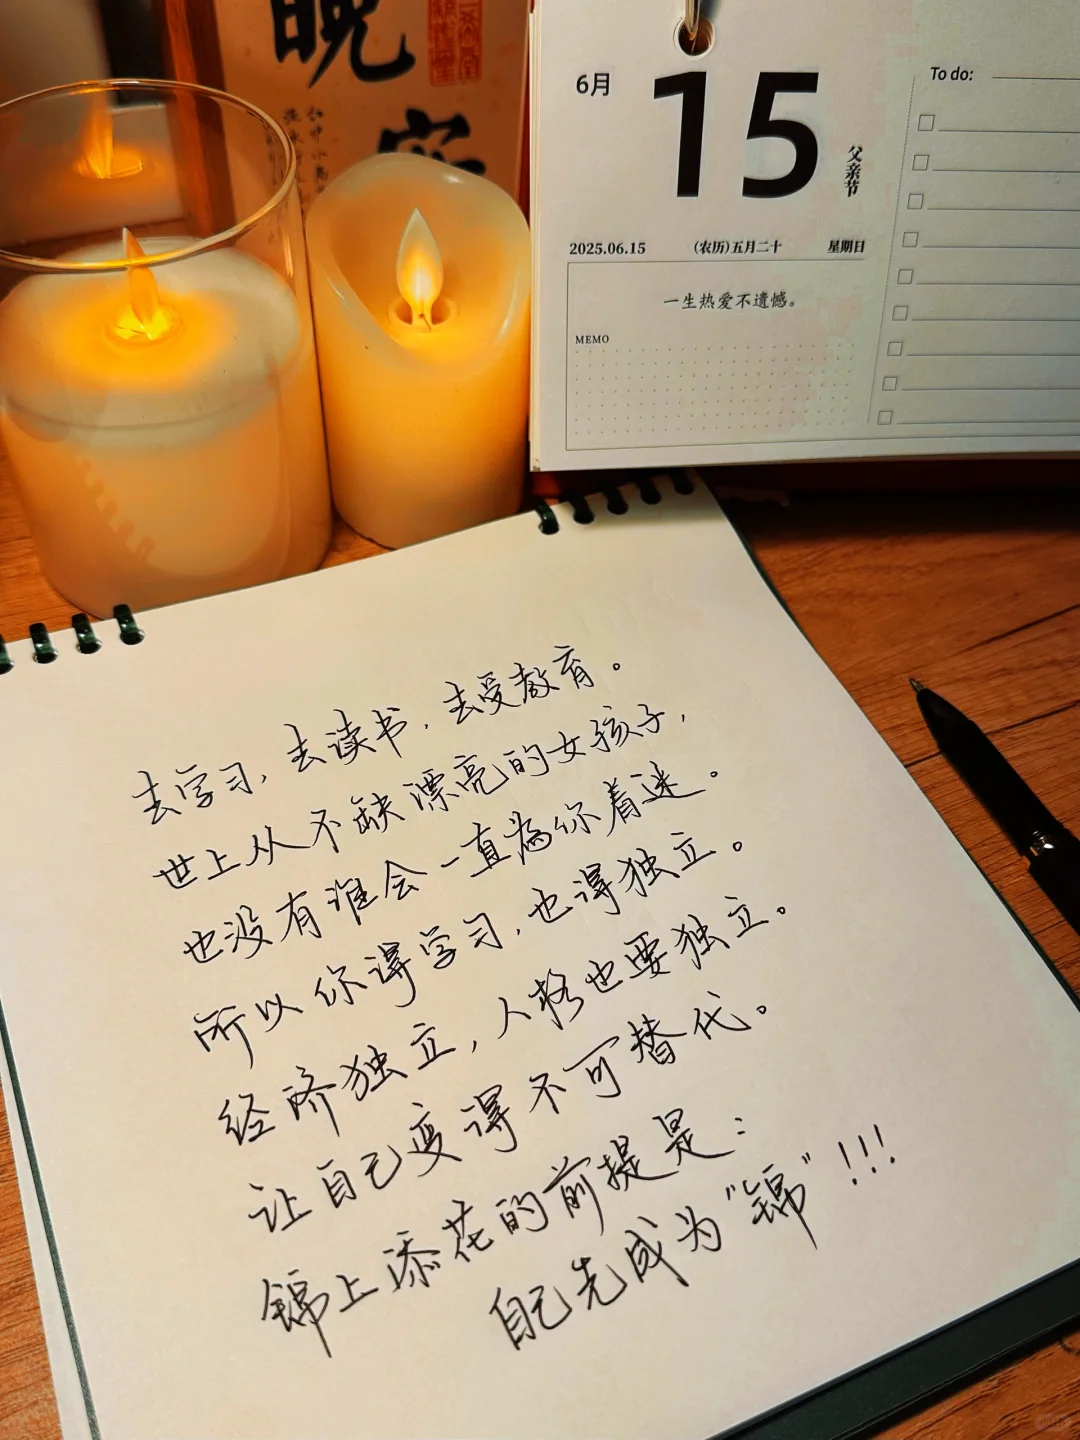 晚
安
6月
15
父亲节
2025.06.15 (农历)五月二十 星期日
一生热爱不遗憾。
MEMO
To do:
去学习,去读书,去受教育。
世上从不缺漂亮的女孩子,
也没有谁会一直为你着迷。
所以你得学习,也得独立。
经济独立,人格也要独立。
让自己变得不可替代。
锦上添花的前提是:
自己先成为“锦”!!!